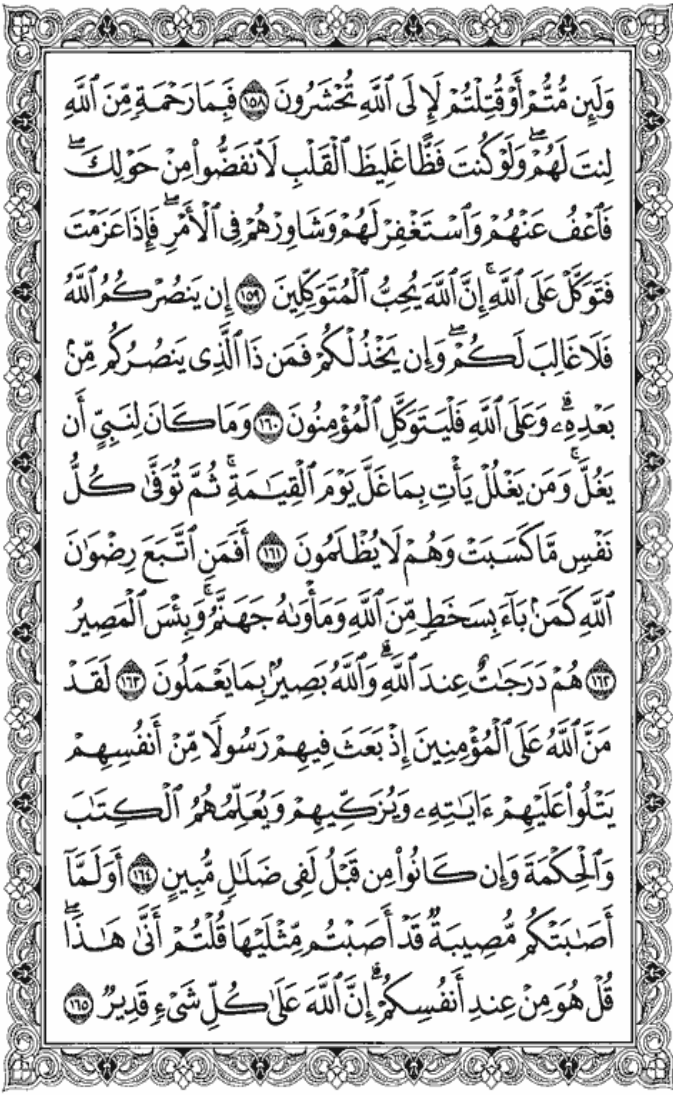 وَلَئِن مُّتُّمْ أَوْ قُتِلْتُمْ لَإِلَى ٱللَّهِ تُحْشَرُونَ ١٥٨ فَبِمَا رَحْمَةٍ مِّنَ ٱللَّهِ
لِنتَ لَهُمْ ۖ وَلَوْ كُنتَ فَظًّا غَلِيظَ ٱلْقَلْبِ لَٱنفَضُّوا۟ مِنْ حَوْلِكَ ۖ
فَٱعْفُ عَنْهُمْ وَٱسْتَغْفِرْ لَهُمْ وَشَاوِرْهُمْ فِى ٱلْأَمْرِ ۖ فَإِذَا عَزَمْتَ
فَتَوَكَّلْ عَلَى ٱللَّهِ ۚ إِنَّ ٱللَّهَ يُحِبُّ ٱلْمُتَوَكِّلِينَ ١٥٩ إِن يَنصُرْكُمُ ٱللَّهُ
فَلَا غَالِبَ لَكُمْ ۖ وَإِن يَخْذُلْكُمْ فَمَن ذَا ٱلَّذِى يَنصُرُكُم مِّنۢ
بَعْدِهِۦ ۗ وَعَلَى ٱللَّهِ فَلْيَتَوَكَّلِ ٱلْمُؤْمِنُونَ ١٦٠ وَمَا كَانَ لِنَبِىٍّ أَن
يَغُلَّ ۚ وَمَن يَغْلُلْ يَأْتِ بِمَا غَلَّ يَوْمَ ٱلْقِيَـٰمَةِ ۚ ثُمَّ تُوَفَّىٰ كُلُّ
نَفْسٍ مَّا كَسَبَتْ وَهُمْ لَا يُظْلَمُونَ ١٦١ أَفَمَنِ ٱتَّبَعَ رِضْوَٰنَ
ٱللَّهِ كَمَنۢ بَآءَ بِسَخَطٍ مِّنَ ٱللَّهِ وَمَأْوَىٰهُ جَهَنَّمُ ۚ وَبِئْسَ ٱلْمَصِيرُ
١٦٢ هُمْ دَرَجَـٰتٌ عِندَ ٱللَّهِ ۗ وَٱللَّهُ بَصِيرٌۢ بِمَا يَعْمَلُونَ ١٦٣ لَقَدْ
مَنَّ ٱللَّهُ عَلَى ٱلْمُؤْمِنِينَ إِذْ بَعَثَ فِيهِمْ رَسُولًا مِّنْ أَنفُسِهِمْ
يَتْلُوا۟ عَلَيْهِمْ ءَايَـٰتِهِۦ وَيُزَكِّيهِمْ وَيُعَلِّمُهُمُ ٱلْكِتَـٰبَ
وَٱلْحِكْمَةَ وَإِن كَانُوا۟ مِن قَبْلُ لَفِى ضَلَـٰلٍ مُّبِينٍ ١٦٤ أَوَلَمَّآ
أَصَـٰبَتْكُم مُّصِيبَةٌ قَدْ أَصَبْتُم مِّثْلَيْهَا قُلْتُمْ أَنَّىٰ هَـٰذَا ۖ
قُلْ هُوَ مِنْ عِندِ أَنفُسِكُمْ ۗ إِنَّ ٱللَّهَ عَلَىٰ كُلِّ شَىْءٍ قَدِيرٌ ١٦٥